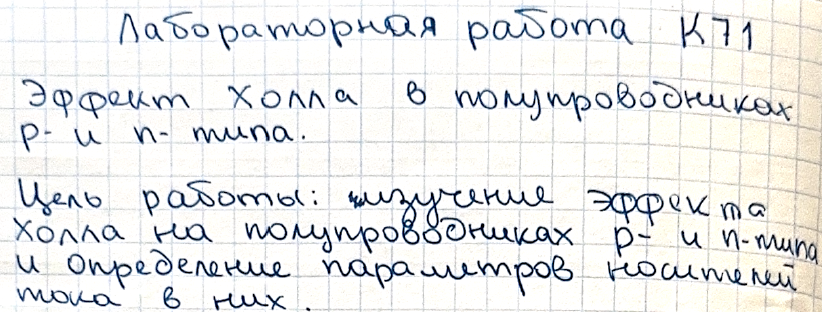 Лабораторная работа К71
Эффект Холла в полупроводниках
p- и n- типа.
Цель работы: изучение эффекта
Холла на полупроводниках p- и n-типа
и определение параметров носителей
тока в них.